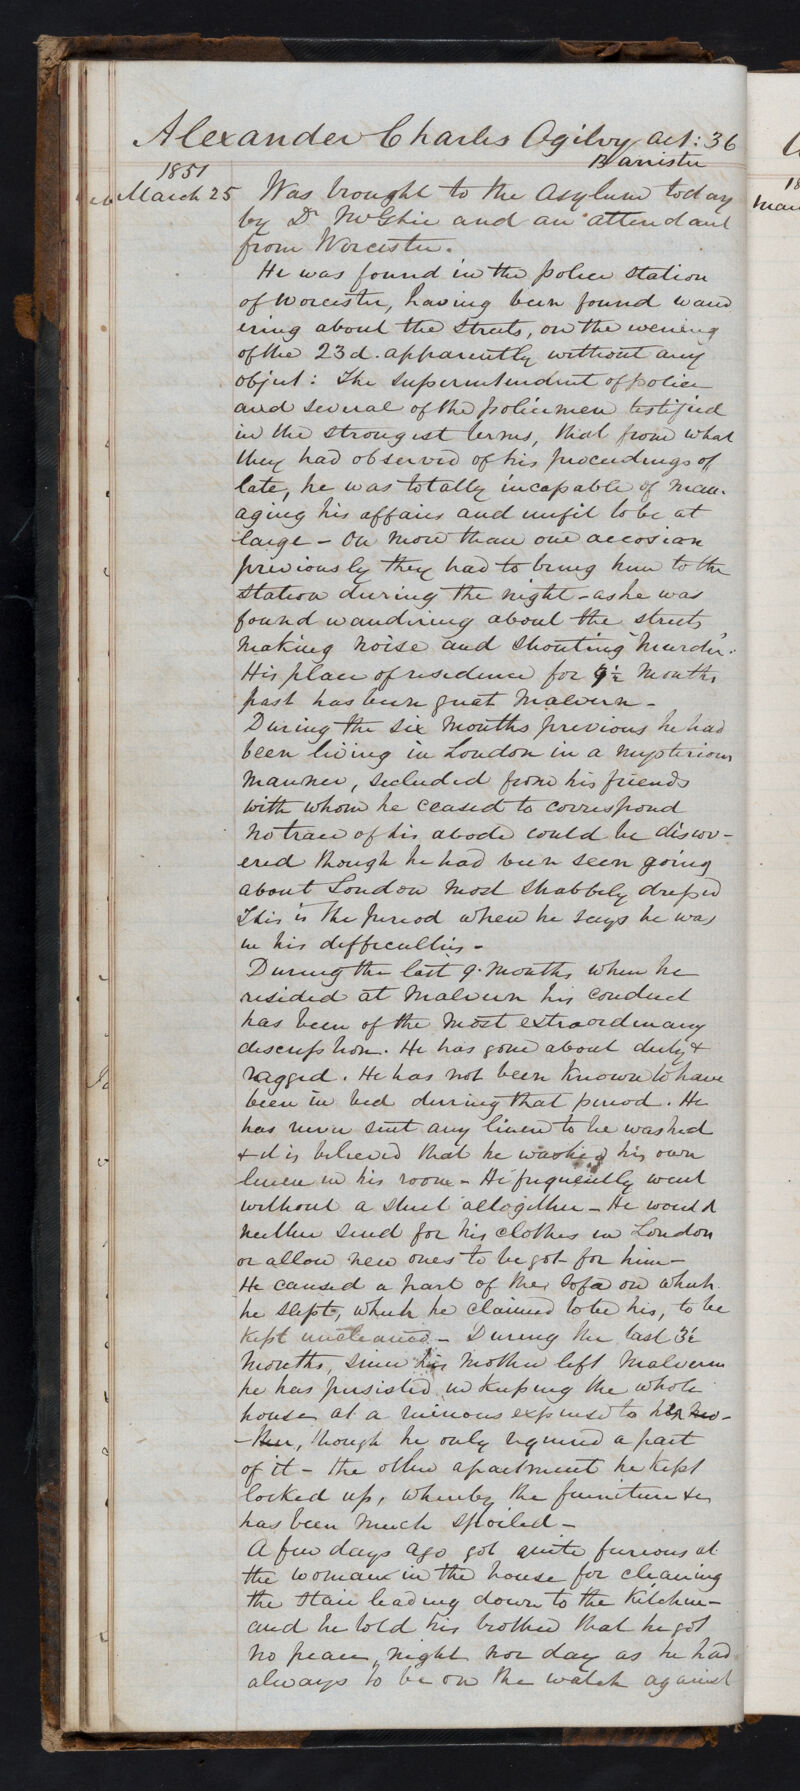 Alexander Charles Ogilvy aet: 36
Barrister
1851
March 25 Was brought to the Asylum today
by Dr McGhie and an attendant
from Worcester.
He was found in the police station
of Worcester, having been found wand
ering about the streets, on the evening
of the 23d. apparently without any
object: The superintendent of police
and several of the policemen testified
in the strongest terms, that from what
they had observed of his proceedings of
late, he was totally incapable of man-
aging his affairs and unfit to be at
large - On more than one accosian
previously they had to bring him to the
station during the night - as he was
found wandering about the streets
making noise and shouting "Murder".
His place of residence for 9½ months
past has been great Malvern -
During the six months previous he had
been living in London in a mysterious
manner, secluded from his friends
with whom he ceased to correspond
No trace of his abode could be discov-
ered though he had been seen going
about London most shabbily dressed
This is the period when he says he was
in his difficulties -
During the last 9 months when he
resided at Malvern his conduct
has been of the most extraordinary
description. He has gone about dirty &
ragged. He has not been known to have
been in bed during that period. He
has never sent any linen to be washed
& it is believed that he washed his own
linen in his room - He frequently went
without a shirt altogether - He would
neither send for his clothes in London
or allow new ones to be got for him -
He caused a part of the sofa on which
he slept, which he claimed to be his, to be
kept uncleaned - During the last 3½
months, since his mother left Malvern
he has persisted in keeping the whole
house at a ruinous expense to her mo-
-ther, though he only required a part
of it - the other apartment he kept
locked up, whereby the furniture &c
has been much spoiled -
A few days ago got quite furious at
the woman in the house for cleaning
the stair leading down to the kitchen -
and he told his brother that he got
no peace, night nor day as he had
always to be on the watch against